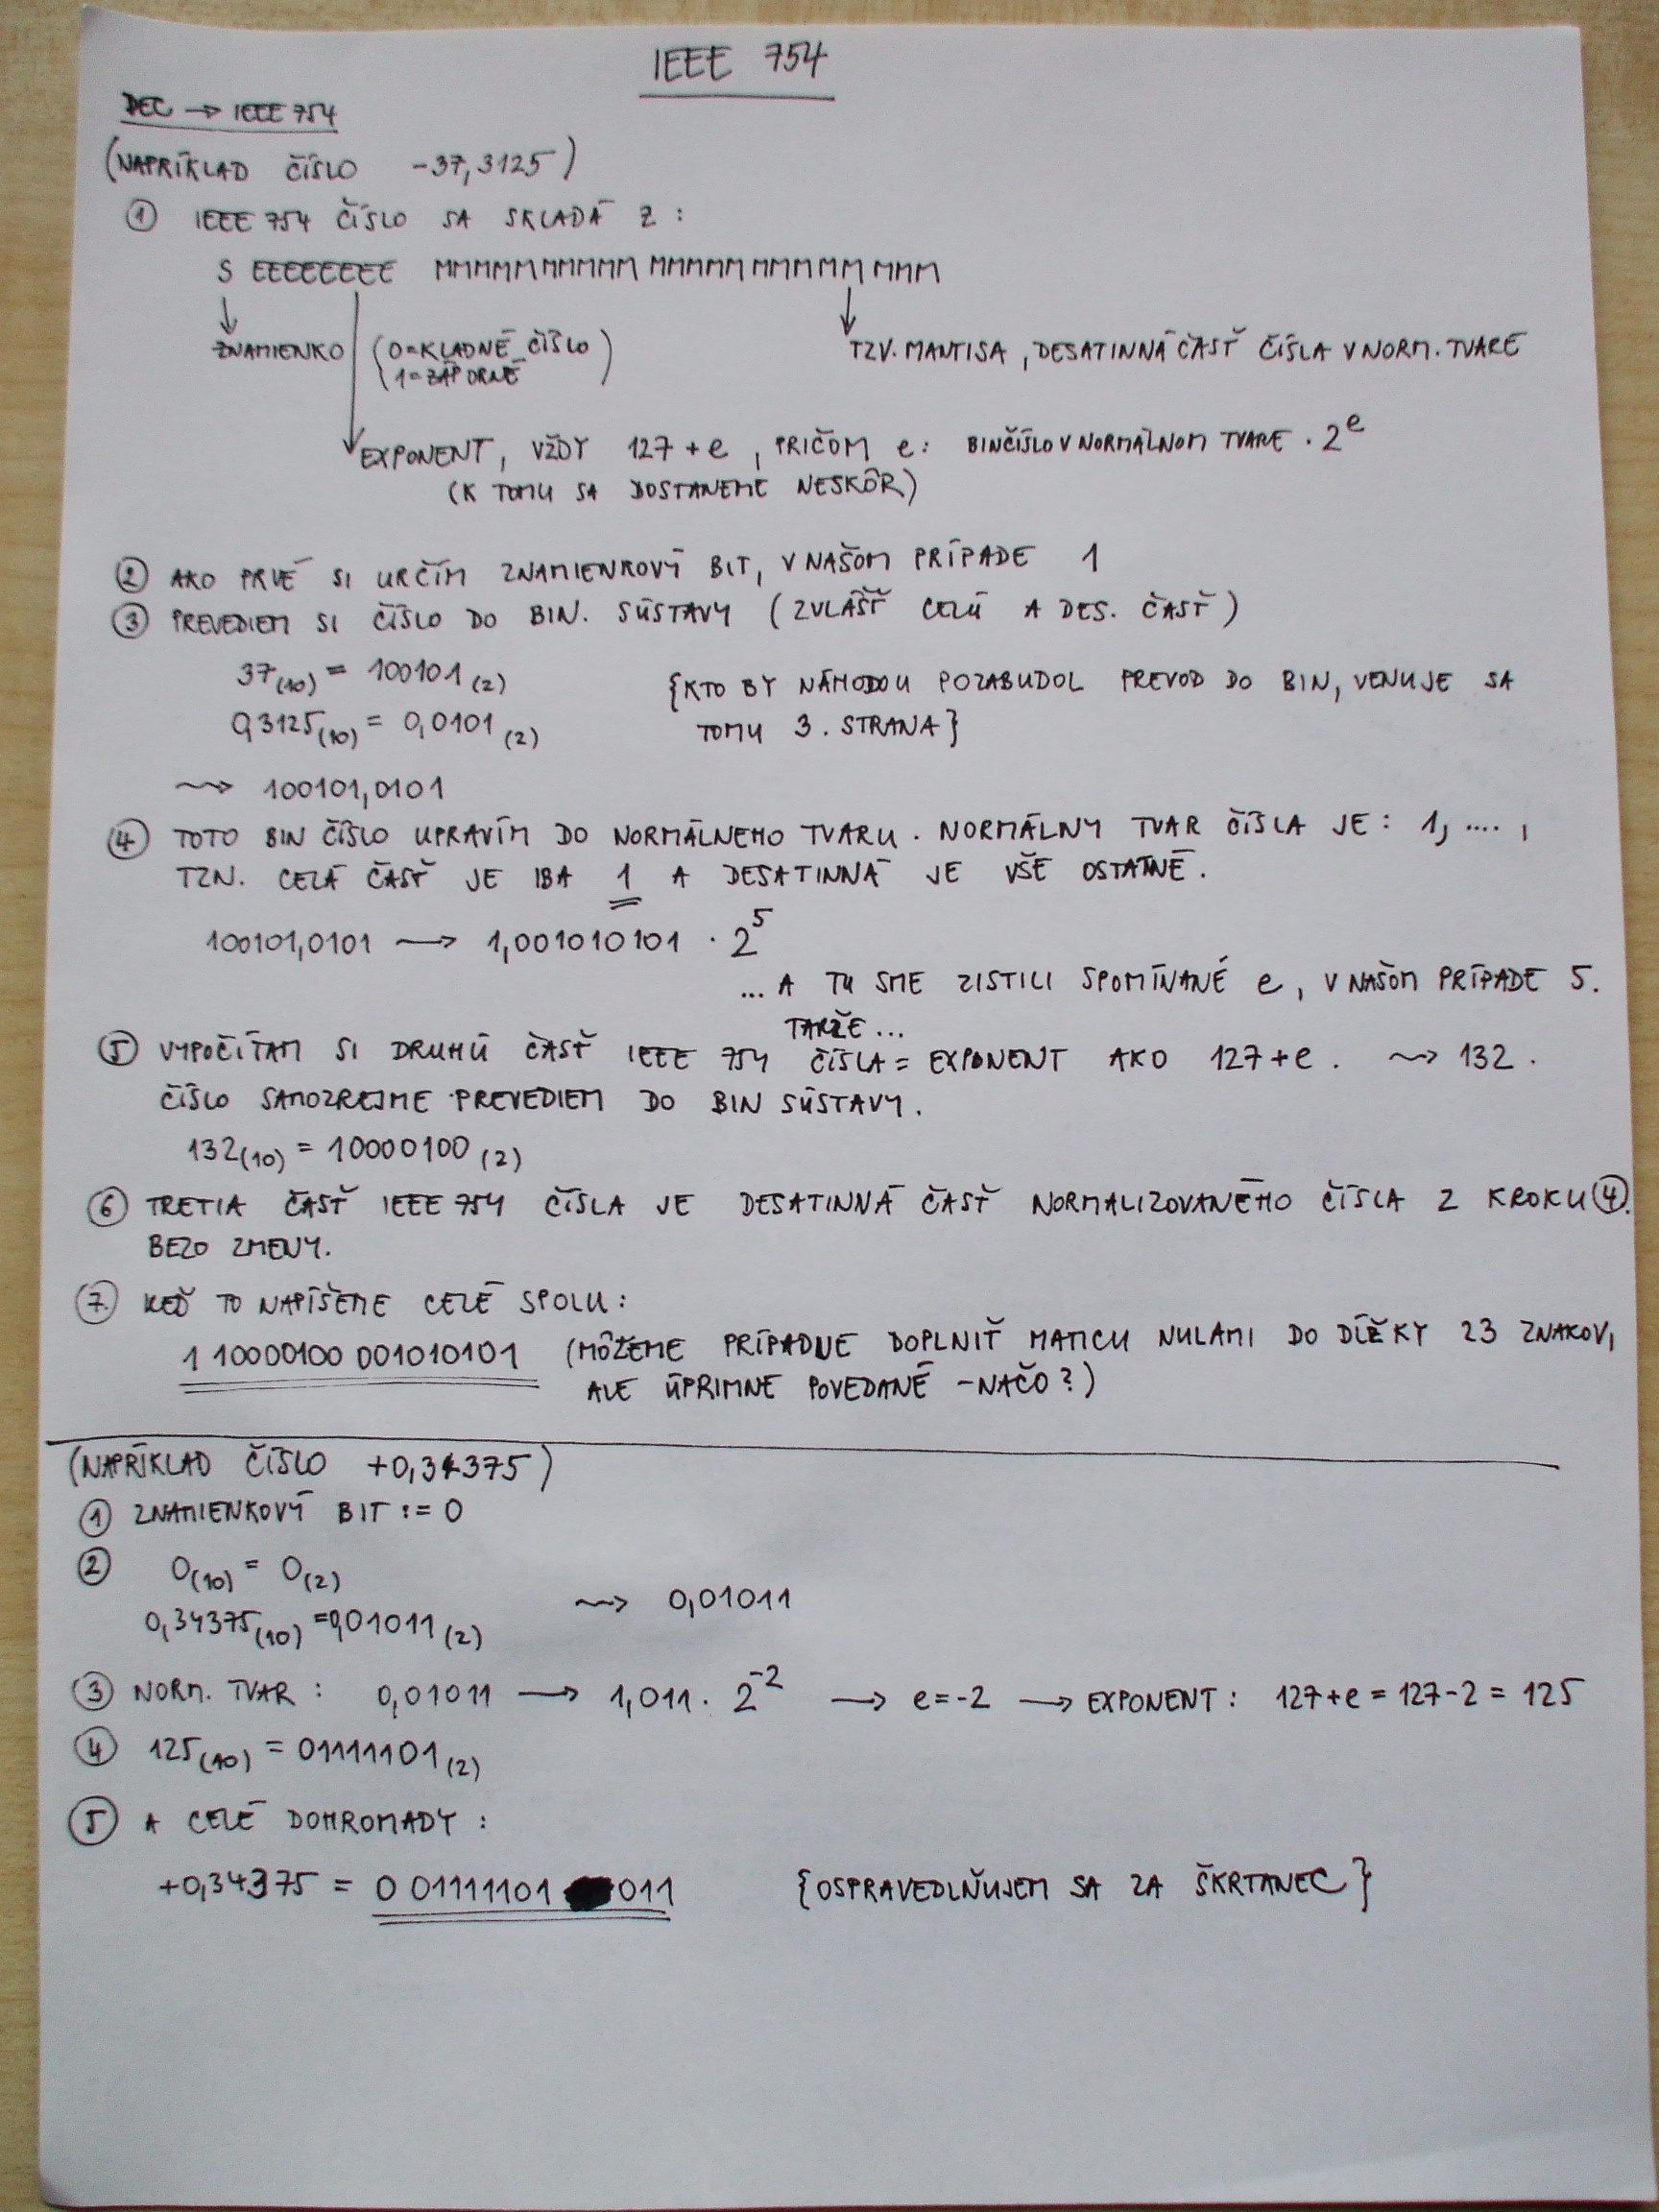 IEEE 754
DEC → IEEE 754
(NAPRÍKLAD ČÍSLO -37,3125)
① IEEE 754 ČÍSLO SA SKLADÁ Z:
S EEEEEEEE MMMMMMMMMM MMMMMMMMMM MMM
ZNAMIENKO (0=KLADNÉ ČÍSLO TZV. MANTISA, DESATINNÁ ČASŤ ČÍSLA V NORM. TVARE
1=ZÁPORNÉ)
EXPONENT, VŽDY 127+e, PRIČOM e: BINČÍSLO V NORMÁLNOM TVARE · 2^e
(K TOMU SA DOSTANEME NESKÔR)
② AKO PRVÉ SI URČÍM ZNAMIENKOVÝ BIT, V NAŠOM PRÍPADE 1
③ PREVEDIEM SI ČÍSLO DO BIN. SÚSTAVY (ZVLÁŠŤ CELÚ A DES. ČASŤ)
37(10) = 100101(2) {KTO BY NÁHODOU POZABUDOL PREVOD DO BIN, VENUJE SA
0,3125(10) = 0,0101(2) TOMU 3. STRANA}
⇝ 100101,0101
④ TOTO BIN ČÍSLO UPRAVÍM DO NORMÁLNEHO TVARU. NORMÁLNY TVAR ČÍSLA JE: 1, ...,
TZN. CELÁ ČASŤ JE IBA 1 A DESATINNÁ JE VŠE OSTATNÉ.
100101,0101 → 1,001010101 · 2^5
... A TU SME ZISTILI SPOMÍNANÉ e, V NAŠOM PRÍPADE 5.
TAKŽE...
⑤ VYPOČÍTAM SI DRUHÚ ČASŤ IEEE 754 ČÍSLA = EXPONENT AKO 127+e. ⇝ 132.
ČÍSLO SAMOZREJME PREVEDIEM DO BIN SÚSTAVY.
132(10) = 10000100(2)
⑥ TRETIA ČASŤ IEEE 754 ČÍSLA JE DESATINNÁ ČASŤ NORMALIZOVANÉHO ČÍSLA Z KROKU ④.
BEZO ZMENY.
⑦ KEĎ TO NAPÍŠEME CELÉ SPOLU:
1 10000100 001010101 (MÔŽEME PRÍPADNE DOPLNIŤ MATICU NULAMI DO DĹŽKY 23 ZNAKOV,
ALE ÚPRIMNE POVEDANÉ - NAČO?)
(NAPRÍKLAD ČÍSLO +0,34375)
① ZNAMIENKOVÝ BIT := 0
② 0(10) = 0(2)
⇝ 0,01011
0,34375(10) = 0,01011(2)
③ NORM. TVAR: 0,01011 → 1,011 · 2^-2 → e=-2 → EXPONENT: 127+e = 127-2 = 125
④ 125(10) = 01111101(2)
⑤ A CELÉ DOHROMADY:
+0,34375 = 0 01111101 011 {OSPRAVEDLŇUJEM SA ZA ŠKRTANEC}